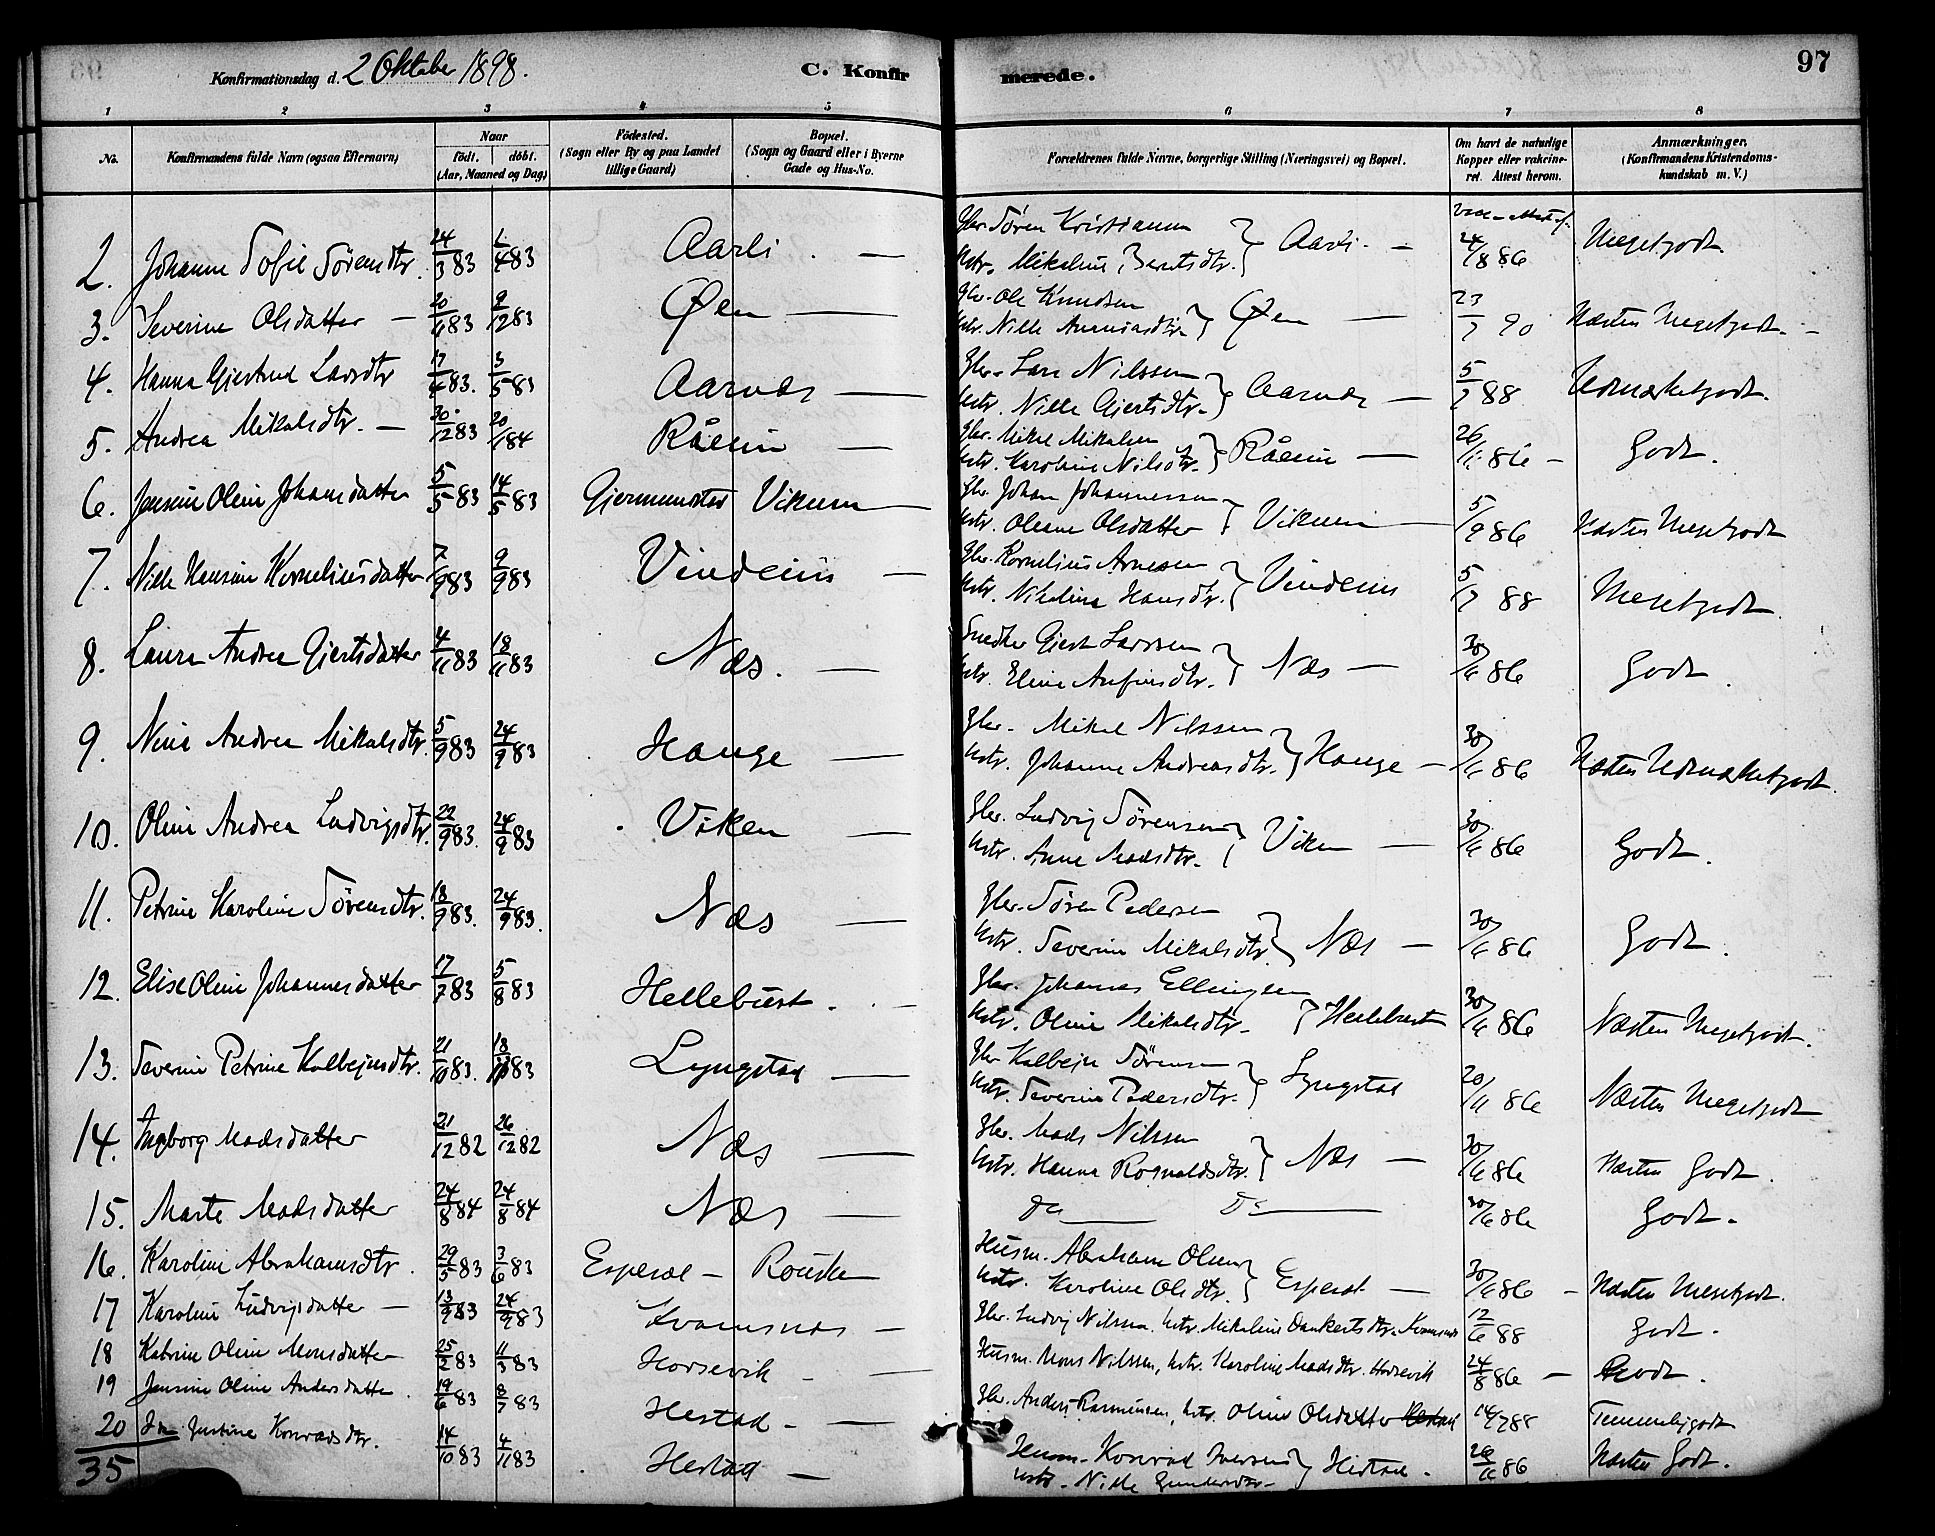 Konfirmationsdag d. 2 Oktober 1898. C. Konfirmerede. 97
1 2 3 4 5 6 7 8
No. Konfirmandens fulde Navn (ogsaa Efternavn) Naar födt. döbt. (Aar, Maaned og Dag) Födested. (Sogn eller By og paa Landet tillige Gaard) Bopæl. (Sogn og Gaard eller i Byerne Gade og Hus-No. Forældrenes fulde Navne, borgerlige Stilling (Næringsvei) og Bopæl. Om havt de naturlige Kopper eller vakcineret. Attest herom. Anmærkninger. (Konfirmandens Kristendomskundskab m. V.)
2. Johanne Sofie Sørensdtr. 24/3 83 1/4 83 Aarli. — Gbr. Søren Kristiansen
Hstr. Mikaline Berntsdtr. } Aarli. — 24/8 86 Megetgodt.
3. Severine Olsdatter — 20/11 83 9/12 83 Øen — Gbr. Ole Knudsen
Hstr. Nille Ananiasdtr. } Øen — 23/7 90 Næsten Megetgodt. —
4. Hanna Gjertrud Larsdtr 17/4 83. 3/5 83 Aarnæs — Gbr. Lars Nilssen
Hstr. Nille Gjertsdtr. } Aarnæs — 5/7 88 Udmærketgodt.
5. Andrea Mikalsdtr. — 30/12 83 20/1 84 Råeim — Gbr. Mikal Mikalsen
Hstr. Karoline Nilsdtr. } Råeim — 26/6 86 — Godt.
6. Jensine Oline Johansdatter 5/5 83 14/5 83 Gjermundstad Vikum — Gbr. Johan Johannessen
Hstr. Oleane Olsdatter } Vikum — 5/9 86 Næsten Megetgodt
7. Nille Hansine Kornelinsdatter 7/9 83 9/9 83 Vindeim — Gbr. Kornelius Arnesen
Hstr. Nikoline Hansdtr. } Vindeim 5/7 88 Megetgodt.
8. Laura Andrea Gjertsdatter 4/11 83 18/11 83 Næs. — Snedker Gjert Larssen
Hstr. Eline Anfinsdtr. } Næs — 30/6 86 Godt.
9. Nina Andrea Mikalsdtr. 5/9 83 24/9 83 Hauge — Gbr. Mikal Nilssen
Hstr. Johanne Andreasdtr. } Hauge — 30/6 86 Næsten Udmærketgodt.
10. Oline Andrea Ludvigsdtr. 22/9 83. 24/9 83 Viken — Gbr. Ludvig Sørensen
Hstr. Anne Madsdtr. } Viken — 30/6 86 Godt.
11. Petrine Karoline Sørensdtr. 18/9 83. 24/9 83. Næs — Gbr. Søren Pedersen
Hstr. Severine Mikalsdtr. } Næs — 30/6 86 Godt.
12. Elise Oline Johannesdatter 17/7 83 5/8 83 Hellebust. — Gbr. Johannes Ellingsen
Hstr. Oline Mikalsdtr. } Hellebust 30/6 86 Næsten Megetgodt.
13. Severine Petrine Kolbejnsdtr. 21/10 83. 18/11 83 Lyngstad — Gbr Kolbejn Sørensen
Hstr. Severine Pedersdtr. } Lyngstad 20/11 86 Næsten Megetgodt
14. Ingborg Madsdatter 21/12 82 26/12 82 Næs — Gbr. Mads Nilssen
Hstr. Hanna Rognaldsdtr. } Næs — 30/6 86 Næsten Godt.
15. Marte Madsdatter 24/8 84 24/8 84 Næs — Do — Do — 30/6 86 Godt.
16. Karoline Abrahamsdtr. 29/5 83 3/6 83 Esperøe — Husm. Abraham Olsen
Hstr. Karoline Olsdtr. } Esperøe — 30/6 86 — Næsten Megetgodt.
17 Karoline Ludvigsdatter — 13/9 83 24/9 83 Kvamsnæs — Gbr. Ludvig Nilssen. Hstr. Mikaline Dankertsdtr. Kvamsnæs 12/6 88 Godt.
18 Katrine Oline Monsdatter 25/2 83 11/3 83 Horsevik — Husm. Mons Nilssen, Hstr. Karoline Madsdtr. Horsevik 24/8 86 — Godt.
19 Jensine Oline Andersdatter. 19/6 83 8/7 83 Hestad — Gbr. Anders Rasmussen, Hstr. Oline Olsdatter Hestad 14/7 88 Temmeligodt
20 Justine Konradsdtr. 14/10 83 4/11 83 Hestad — Husm. Konrad Iversen
Hstr. Nille } Hestad. 26/6 86 Næsten Godt.
35